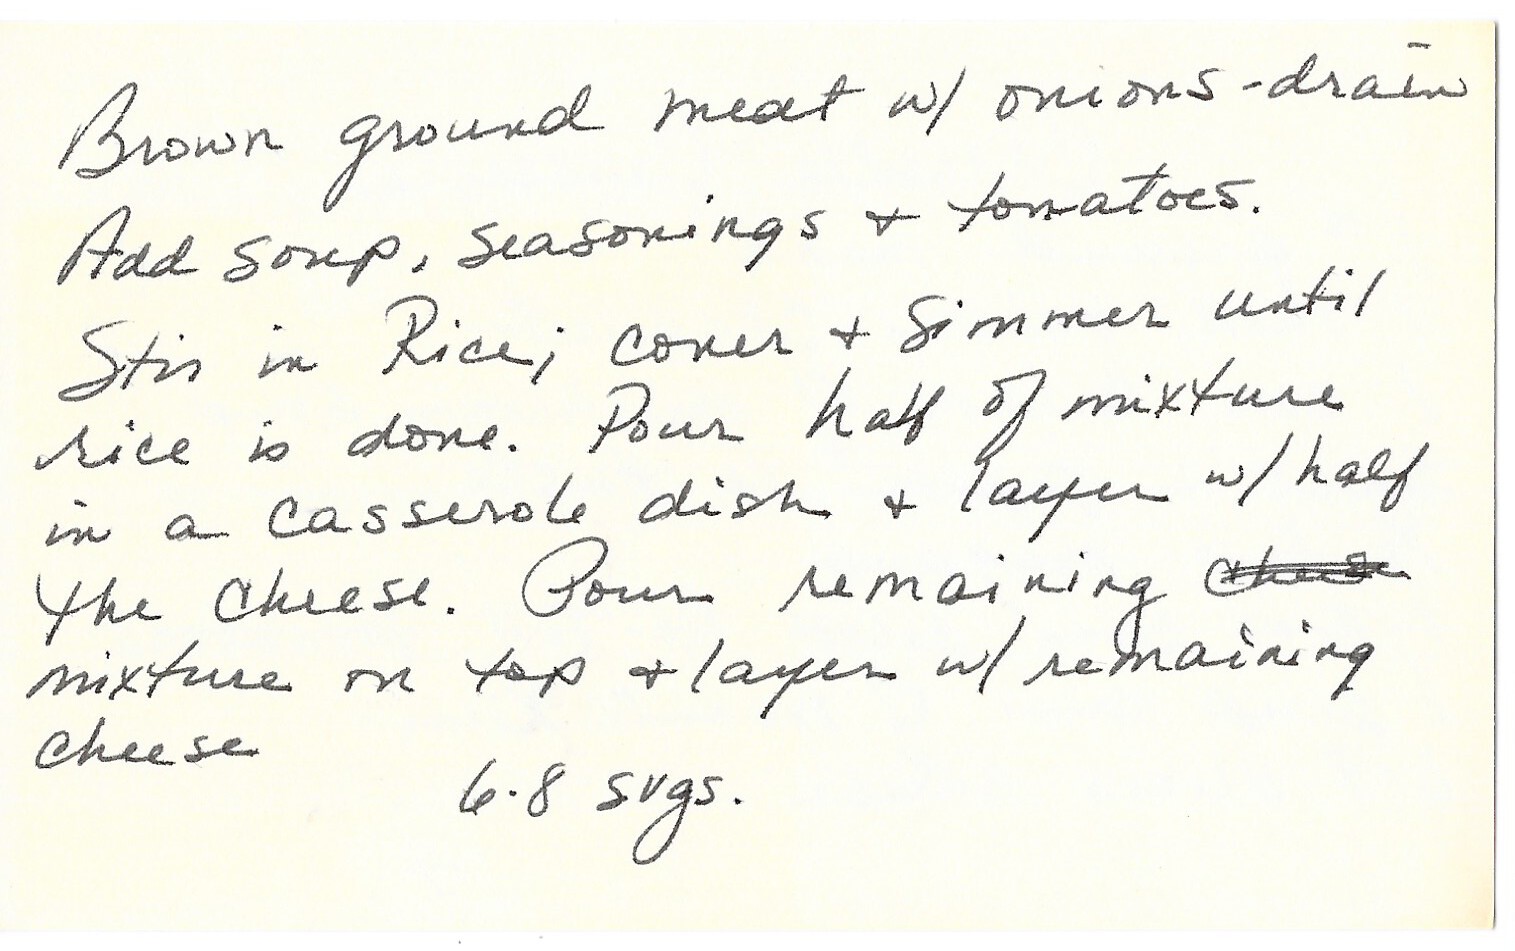 Brown ground meat w/ onions - drain
Add soup, seasonings + tomatoes.
Stir in Rice; cover + Simmer until
rice is done. Pour half of mixture
in a casserole dish + layer w/ half
the cheese. Pour remaining
mixture on top + layer w/ remaining
cheese
6-8 svgs.